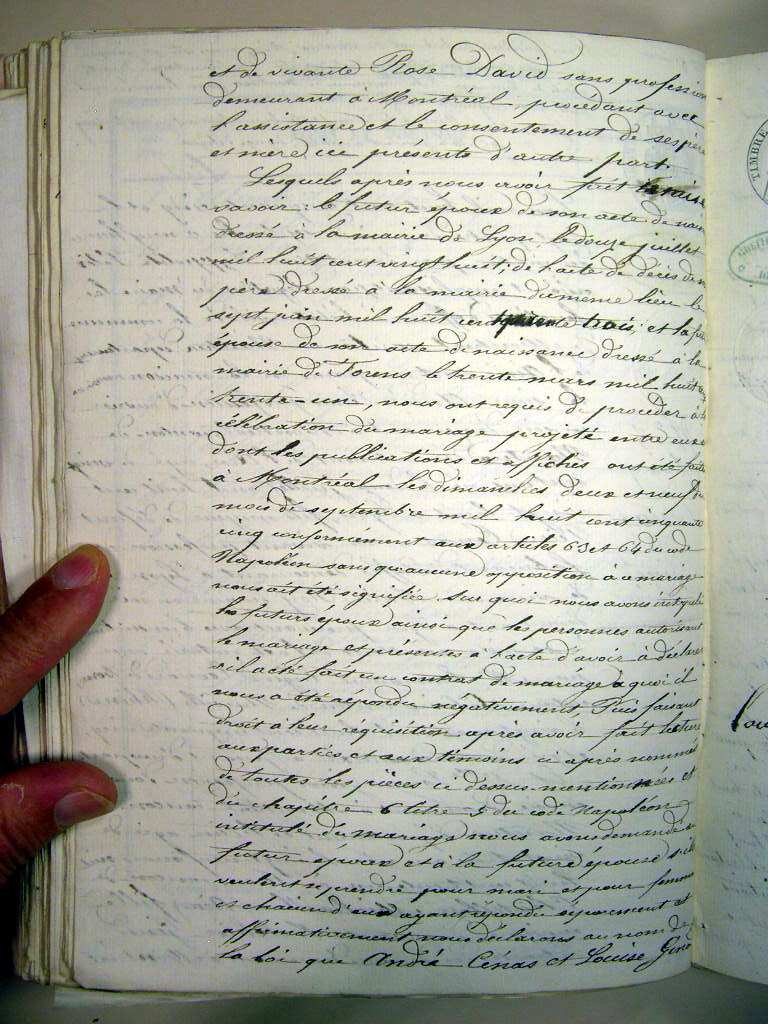 et de vivante Rose David sans profession
demeurant à Montréal, procédant avec
l'assistance et le consentement de ses père
et mère ici présents d'autre part.
Lesquels après nous avoir fait remise
savoir: le futur époux de son acte de nais
dressé à la mairie de Lyon, le douze juillet
mil huit cent vingt huit, de l'acte de décès de
père dressé à la mairie du même lieu le
sept juin mil huit cent trois, et la
épouse de son acte de naissance dressé à la
mairie de Torens le trente mars mil huit
trente-un, nous ont requis de procéder à la
célébration du mariage projeté entre eux
dont les publications et affiches ont été faites
à Montréal les dimanches deux et neuf du
mois de septembre mil huit cent cinquante
cinq conformément aux articles 63 et 64 du code
Napoléon sans qu'aucune opposition à ce mariage
nous ait été signifiée. Sur quoi nous avons interpellé
les futurs époux ainsi que les personnes autorisant
le mariage et présentes à l'acte d'avoir à déclarer
s'il a été fait un contrat de mariage à quoi il
nous a été répondu négativement Puis faisant
droit à leur réquisition après avoir fait lecture
aux parties et aux témoins ci après nommés
de toutes les pièces ci dessus mentionnées et
du chapitre 6 titre 5 du code Napoléon
intitulé du mariage nous avons demandé au
futur époux et à la future épouse s'ils
veulent se prendre pour mari et pour femme
et chacun d'eux ayant répondu séparément et
affirmativement nous déclarons au nom de
la loi que André Cénas et Louise
TIMBRE